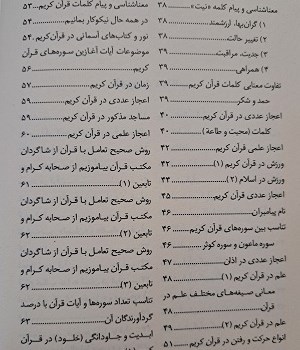 معناشناسی و پیام کلمه «نیت» ۳۸
۱) گران‌بها، ارزشمند ۳۸
۲) تغییر حالت ۳۸
۳) جدیت، مراقبت ۳۹
۴) همراهی ۳۹
تفاوت معنایی کلمات قرآن کریم
حمد و شکر ۳۹
اعجاز عددی در قرآن کریم ۴۰
کلمات (محبت و طاعة) ۴۰
اعجاز علمی قرآن کریم ۴۲
ورزش در قرآن کریم (۱) ۴۲
ورزش در اسلام (۲) ۴۴
اعجاز عددی قرآن کریم ۴۵
نام پیامبران ۴۶
تناسب بین سوره‌های قرآن کریم
سوره ماعون و سوره کوثر ۴۶
اعجاز عددی در اذان ۴۷
علم در قرآن کریم (۱) ۴۸
معانی صیغه‌های مختلف علم در
قرآن ۴۸
علم در قرآن کریم (۲) ۴۹
انواع حرکت و رفتن در قرآن کریم ۵۱
معناشناسی و پیام کلمات قرآن کریم ۵۳
در همه حال نیکوکار بمانیم ۵۴
نور و کتاب‌های آسمانی در قرآن کریم ۵۴
موضوعات آیات آغازین سوره‌های قرآن
کریم ۵۶
زمان در قرآن کریم ۵۷
اعجاز عددی در قرآن کریم ۵۹
مساجد مذکور در قرآن کریم ۵۹
اعجاز علمی در قرآن کریم ۶۰
روش صحیح تعامل با قرآن از شاگردان
مکتب قرآن بیاموزیم از صحابه کرام و
تابعین (۱) ۶۱
روش صحیح تعامل با قرآن از شاگردان
مکتب قرآن بیاموزیم از صحابه کرام و
تابعین (۲) ۶۲
روش صحیح تعامل با قرآن از شاگردان
مکتب قرآن بیاموزیم از صحابه کرام و
تابعین (۳) ۶۲
تناسب تعداد سوره‌ها و آیات قرآن با درصد
گردآورندگان آن ۶۳
ابدیت و جاودانگی (خلود) در قرآن